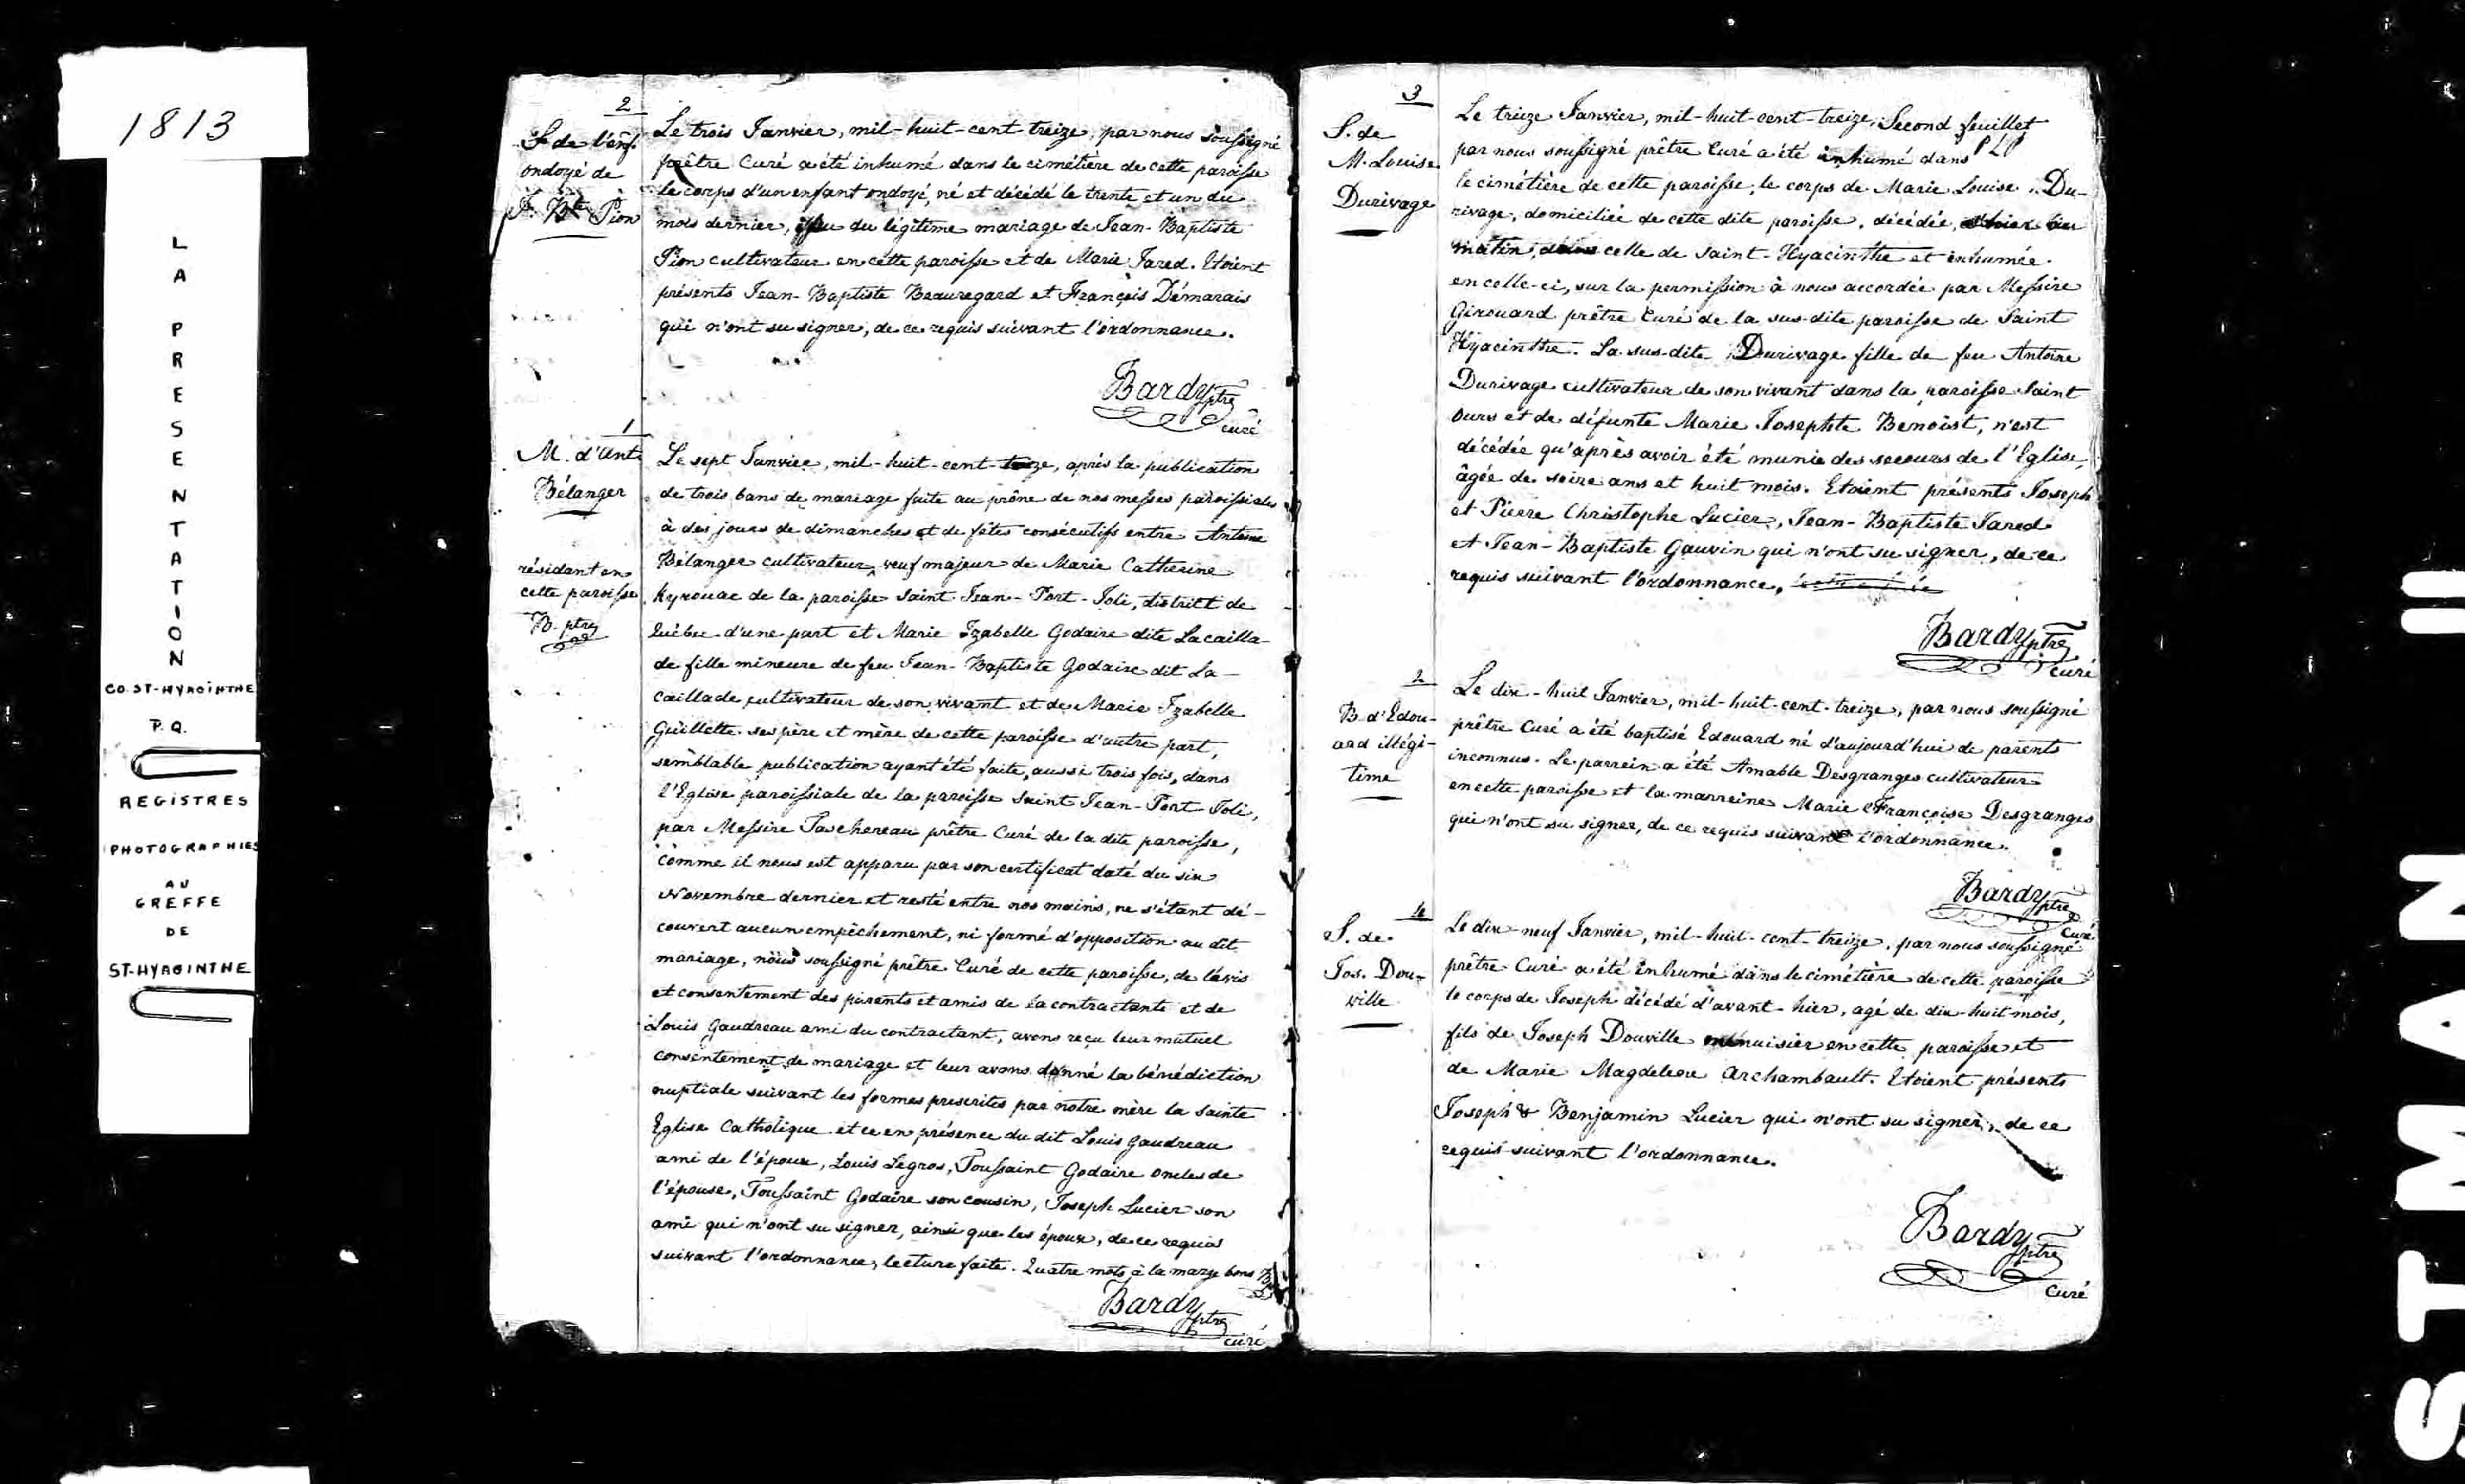 1813
LA PRESENTATION
CO. ST-HYACINTHE
P.Q.
REGISTRES
PHOTOGRAPHIES
AU
GREFFE
DE
ST-HYACINTHE
2
S. de l'enf.
ondoyé de
J. Bte Pion
Le trois Janvier, mil-huit-cent-treize, par nous soussigné
prêtre Curé a été inhumé dans le cimétière de cette paroisse
le corps d'un enfant ondoyé, né et décédé le trente et un du
mois dernier, issu du légitime mariage de Jean-Baptiste
Pion cultivateur en cette paroisse et de Marie Jared. Etoient
présents Jean-Baptiste Beauregard et François Démarais
qui n'ont su signer, de ce requis suivant l'ordonnance.
Bardy ptre
curé
1
M. d'Ant.
Bélanger
résidant en
cette paroisse
B. ptre
Le sept Janvier, mil-huit-cent-treize, après la publication
de trois bans de mariage faite au prône de nos messes paroissiales
à des jours de dimanches et de fêtes consécutifs entre Antoine
Bélanger cultivateur veuf majeur de Marie Catherine
Kyrouac de la paroisse Saint Jean-Port-Joli, district de
Québec d'une part et Marie Izabelle Godaire dite Lacailla-
de fille mineure de feu Jean-Baptiste Godaire dit La-
caillade cultivateur de son vivant et de Marie Izabelle
Guillette ses père et mère de cette paroisse d'autre part,
semblable publication ayant été faite, aussi trois fois, dans
l'Eglise paroissiale de la paroisse Saint Jean-Port Joli,
par Messire Taschereau prêtre Curé de la dite paroisse,
comme il nous est apparu par son certificat daté du six
Novembre dernier et resté entre nos mains, ne s'étant dé-
couvert aucun empêchement, ni formé d'opposition au dit
mariage, nous soussigné prêtre Curé de cette paroisse, de l'avis
et consentement des parents et amis de la contractante et de
Louis Gaudreau ami du contractant, avons reçu leur mutuel
consentement de mariage et leur avons donné la bénédiction
nuptiale suivant les formes prescrites par notre mère la Sainte
Eglise Catholique et ce en présence du dit Louis Gaudreau
ami de l'époux, Louis Legros, Toussaint Godaire oncles de
l'épouse, Toussaint Godaire son cousin, Joseph Lucier son
ami qui n'ont su signer, ainsi que les époux, de ce requis
suivant l'ordonnance, lecture faite. Quatre mots à la marge bons
Bardy ptre
curé
3
S. de
M. Louise
Durivage
Le treize Janvier, mil-huit-cent-treize, Second feuillet
par nous soussigné prêtre Curé a été inhumé dans PLP
le cimétière de cette paroisse, le corps de Marie Louise Du-
rivage, domiciliée de cette dite paroisse, décédée, d'hier au
matin, dans celle de Saint-Hyacinthe et inhumée
en celle-ci, sur la permission à nous accordée par Messire
Girouard prêtre Curé de la sus-dite paroisse de Saint
Hyacinthe. La sus-dite Durivage fille de feu Antoine
Durivage cultivateur de son vivant dans la paroisse Saint
Ours et de défunte Marie Josephte Benoist, n'est
décédée qu'après avoir été munie des secours de l'Eglise,
âgée de seize ans et huit mois. Etoient présents Joseph
et Pierre Christophe Lucier, Jean-Baptiste Jared
et Jean-Baptiste Gauvin qui n'ont su signer, de ce
requis suivant l'ordonnance,
Bardy ptre
curé
2
B. d'Edou-
ard illégi-
time
Le dix-huit Janvier, mil-huit-cent-treize, par nous soussigné
prêtre Curé a été baptisé Edouard né d'aujourd'hui de parents
inconnus. Le parrein a été Amable Desgranges cultivateur
en cette paroisse et la marreine Marie Françoise Desgranges
qui n'ont su signer, de ce requis suivant l'ordonnance.
Bardy ptre
Curé
4
S. de
Jos. Dou-
ville
Le dix-neuf Janvier, mil-huit-cent-treize, par nous soussigné
prêtre Curé a été inhumé dans le cimétière de cette paroisse
le corps de Joseph décédé d'avant-hier, agé de dix-huit mois,
fils de Joseph Douville menuisier en cette paroisse et
de Marie Magdeleine Archambault. Etoient présents
Joseph & Benjamin Lucier qui n'ont su signer, de ce
requis suivant l'ordonnance.
Bardy ptre
Curé
STMAN